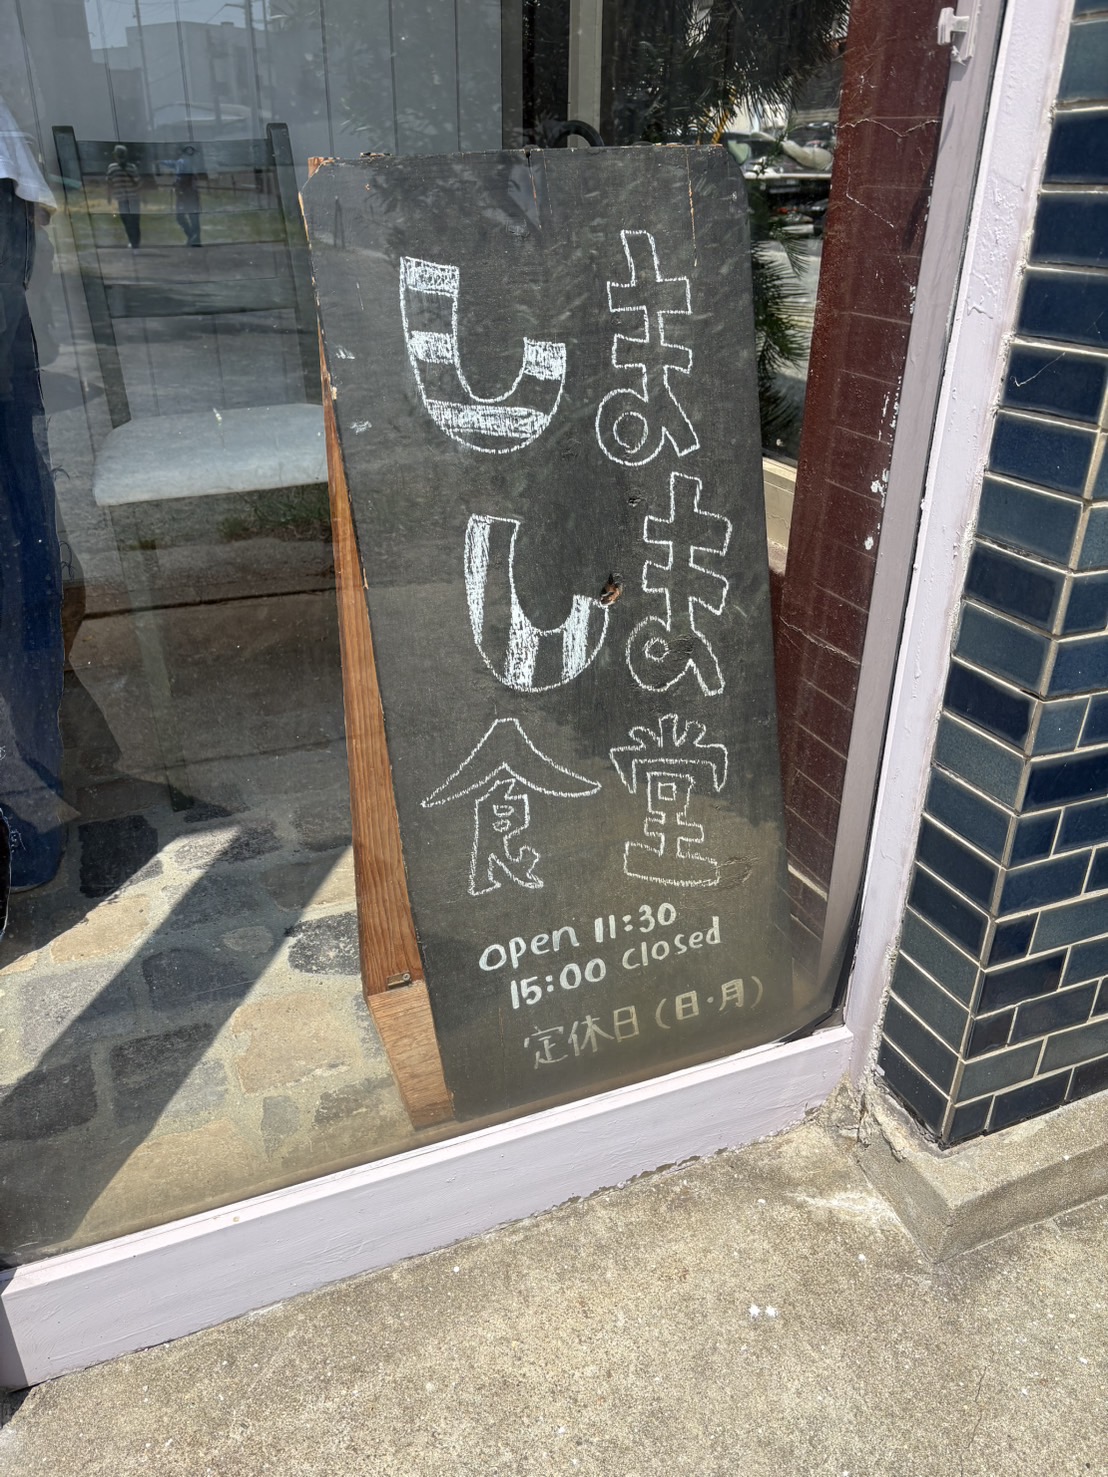 しま
しま
食堂
open 11:30
15:00 closed
定休日(日・月)